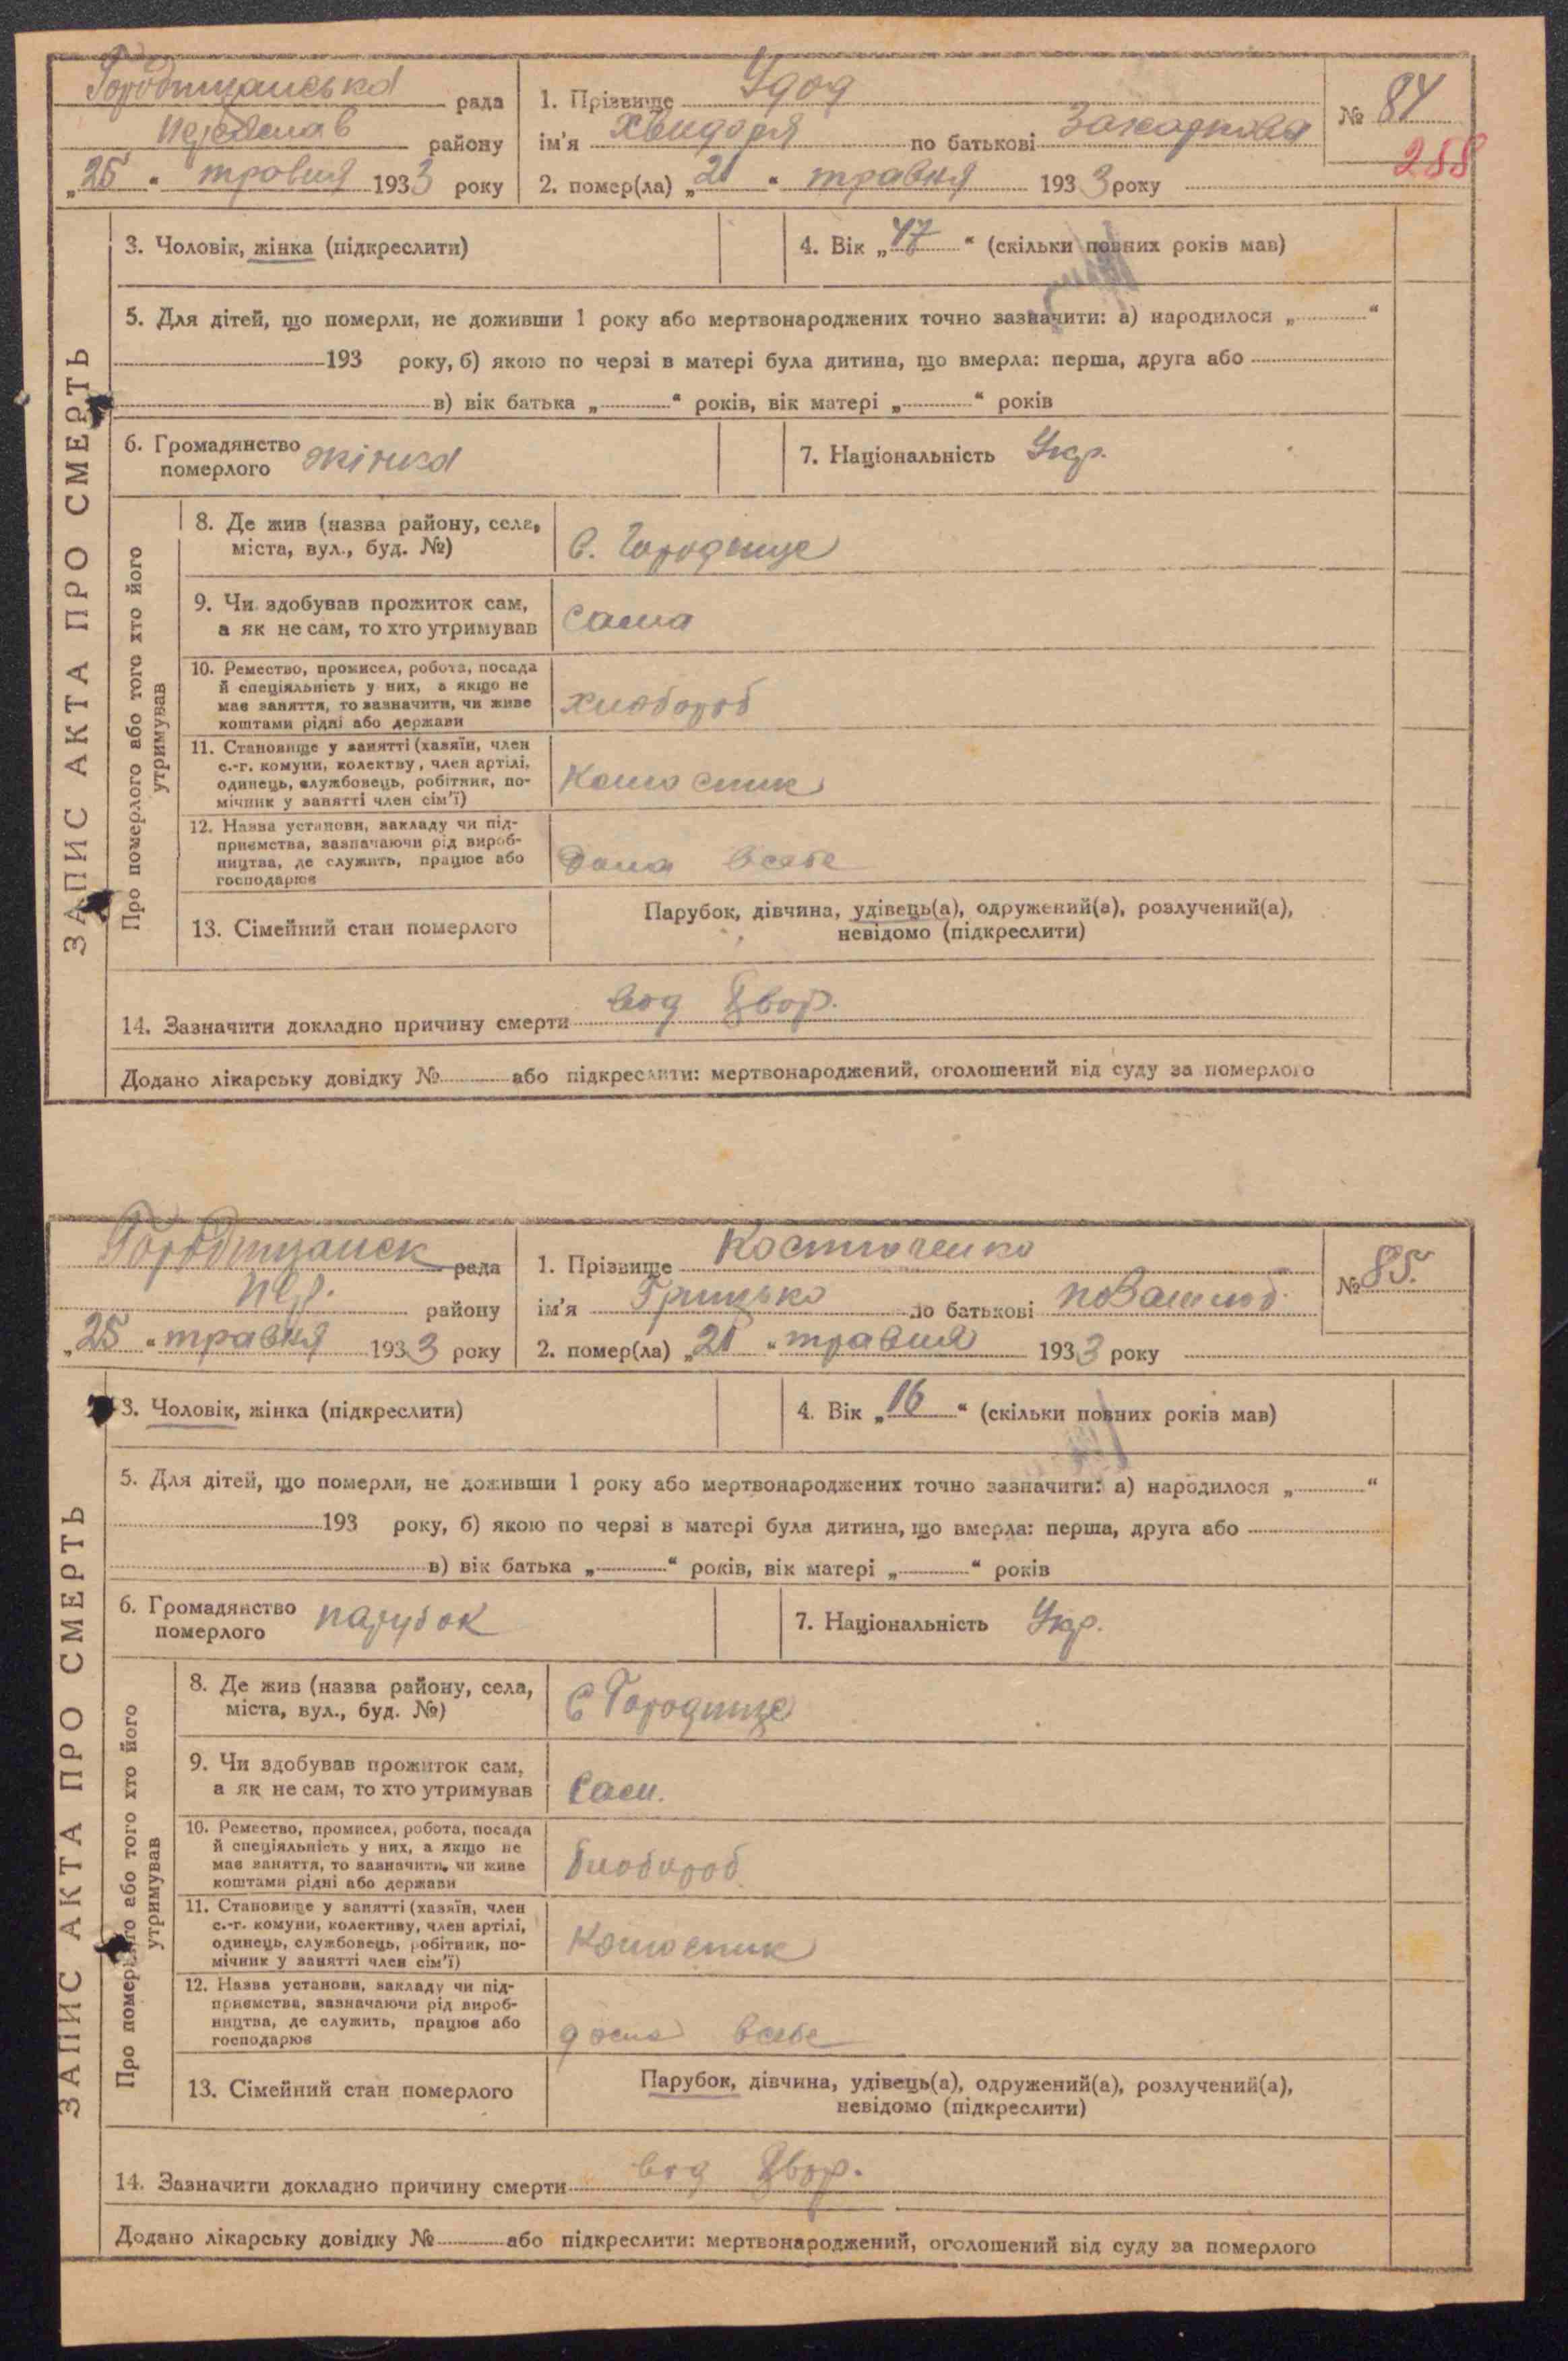 Городищанська рада
Переяслав району
„25“ травня 1933 року
1. Прізвище Удод
ім'я Хвидора по батькові
2. помер(ла) „21“ травня 1933 року
№ 84
288
ЗАПИС АКТА ПРО СМЕРТЬ
3. Чоловік, жінка (підкреслити)
4. Вік „47“ (скільки повних років мав)
5. Для дітей, що померли, не доживши 1 року або мертвонароджених точно зазначити: а) народилося „ “
193 року, б) якою по черзі в матері була дитина, що вмерла: перша, друга або
в) вік батька „ “ років, вік матері „ “ років
6. Громадянство
померлого жінка
7. Національність Укр.
Про померлого або того хто його
утримував
8. Де жив (назва району, села,
міста, вул., буд. №)
С. Городище
9. Чи здобував прожиток сам,
а як не сам, то хто утримував
Сама
10. Ремество, промисел, робота, посада
й спеціяльність у них, а якщо не
має заняття, то зазначити, чи живе
коштами рідні або держави
хлібороб
11. Становище у занятті (хазяїн, член
с.-г. комуни, колектву, член артілі,
одинець, службовець, робітник, по-
мічник у занятті член сім'ї)
12. Назва установи, закладу чи під-
приємства, зазначаючи рід вироб-
ництва, де служить, працює або
господарює
дома всебе
13. Сімейний стан померлого
Парубок, дівчина, удівець(а), одружений(а), розлучений(а),
невідомо (підкреслити)
14. Зазначити докладно причину смерти
Додано лікарську довідку № або підкреслити: мертвонароджений, оголошений від суду за померлого
Городищанск рада
Пер. району
„25“ травня 1933 року
1. Прізвище Костюченко
ім'я Грицько по батькові
2. помер(ла) „21“ травня 1933 року
№ 85.
ЗАПИС АКТА ПРО СМЕРТЬ
3. Чоловік, жінка (підкреслити)
4. Вік „16“ (скільки повних років мав)
5. Для дітей, що померли, не доживши 1 року або мертвонароджених точно зазначити: а) народилося „ “
193 року, б) якою по черзі в матері була дитина, що вмерла: перша, друга або
в) вік батька „ “ років, вік матері „ “ років
6. Громадянство
померлого парубок
7. Національність Укр.
Про померлого або того хто його
утримував
8. Де жив (назва району, села,
міста, вул., буд. №)
С Городище
9. Чи здобував прожиток сам,
а як не сам, то хто утримував
Сам.
10. Ремество, промисел, робота, посада
й спеціяльність у них, а якщо не
має заняття, то зазначити, чи живе
коштами рідні або держави
11. Становище у занятті (хазяїн, член
с.-г. комуни, колективу, член артілі,
одинець, службовець, робітник, по-
мічник у занятті член сім'ї)
12. Назва установи, закладу чи під-
приємства, зазначаючи рід вироб-
ництва, де служить, працює або
господарює
дома всебе
13. Сімейний стан померлого
Парубок, дівчина, удівець(а), одружений(а), розлучений(а),
невідомо (підкреслити)
14. Зазначити докладно причину смерти
Додано лікарську довідку № або підкреслити: мертвонароджений, оголошений від суду за померлого